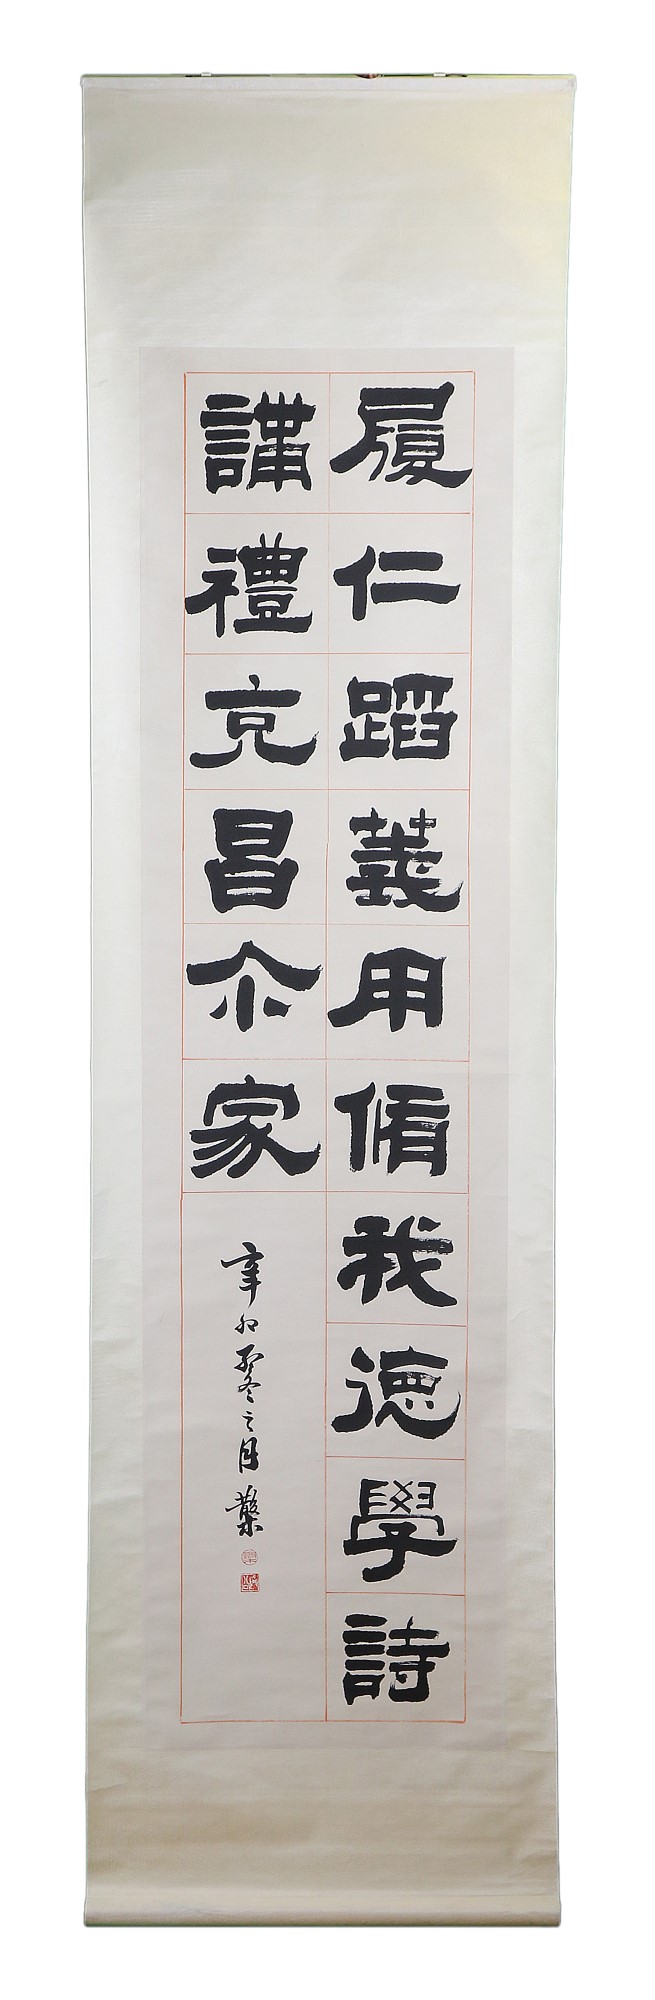 履仁蹈義用脩我德學詩
講禮克昌尒家
辛卯冬之月